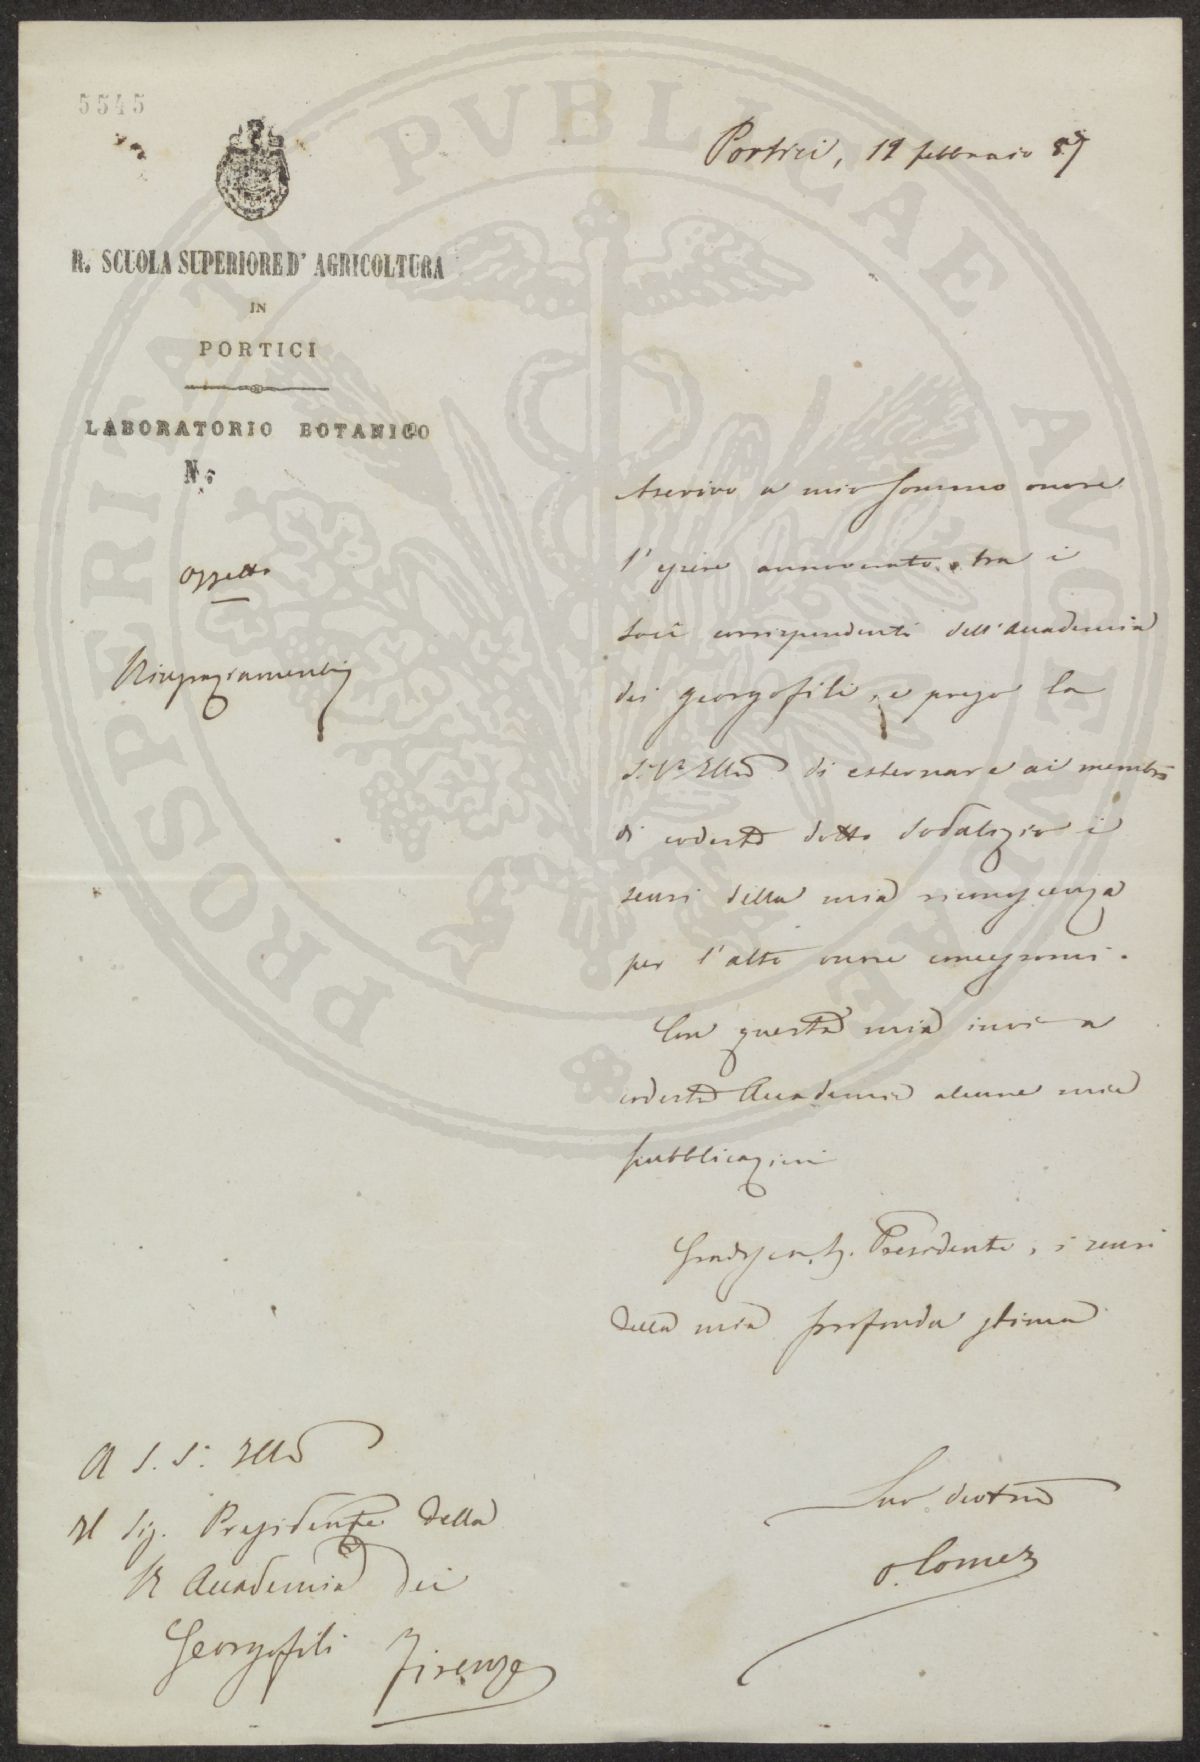 5545
R. SCUOLA SUPERIORE D' AGRICOLTURA
IN
PORTICI
LABORATORIO BOTANICO
N.
Portici, 12 febbraio 87
Oggetto
Ringraziamenti
Ascrivo a mio sommo onore
l'essere annoverato tra i
socî corrispondenti dell'Accademia
dei georgofili, e prego la
S. V. Illma di esternare ai membri
di codesto dotto sodalizio i
sensi della mia riconoscenza
per l'alto onore concessomi.
Con questa mia invio a
codesta Accademia alcune mie
pubblicazioni
Gradisca, Sig. Presidente, i sensi
della mia profonda stima
Suo devotmo
O. Comes
A S. S. Illma
Il Sig. Presidente della
R Accademia dei
Georgofili Firenze
PROSPERITATI PVBLICAE AVGENDAE